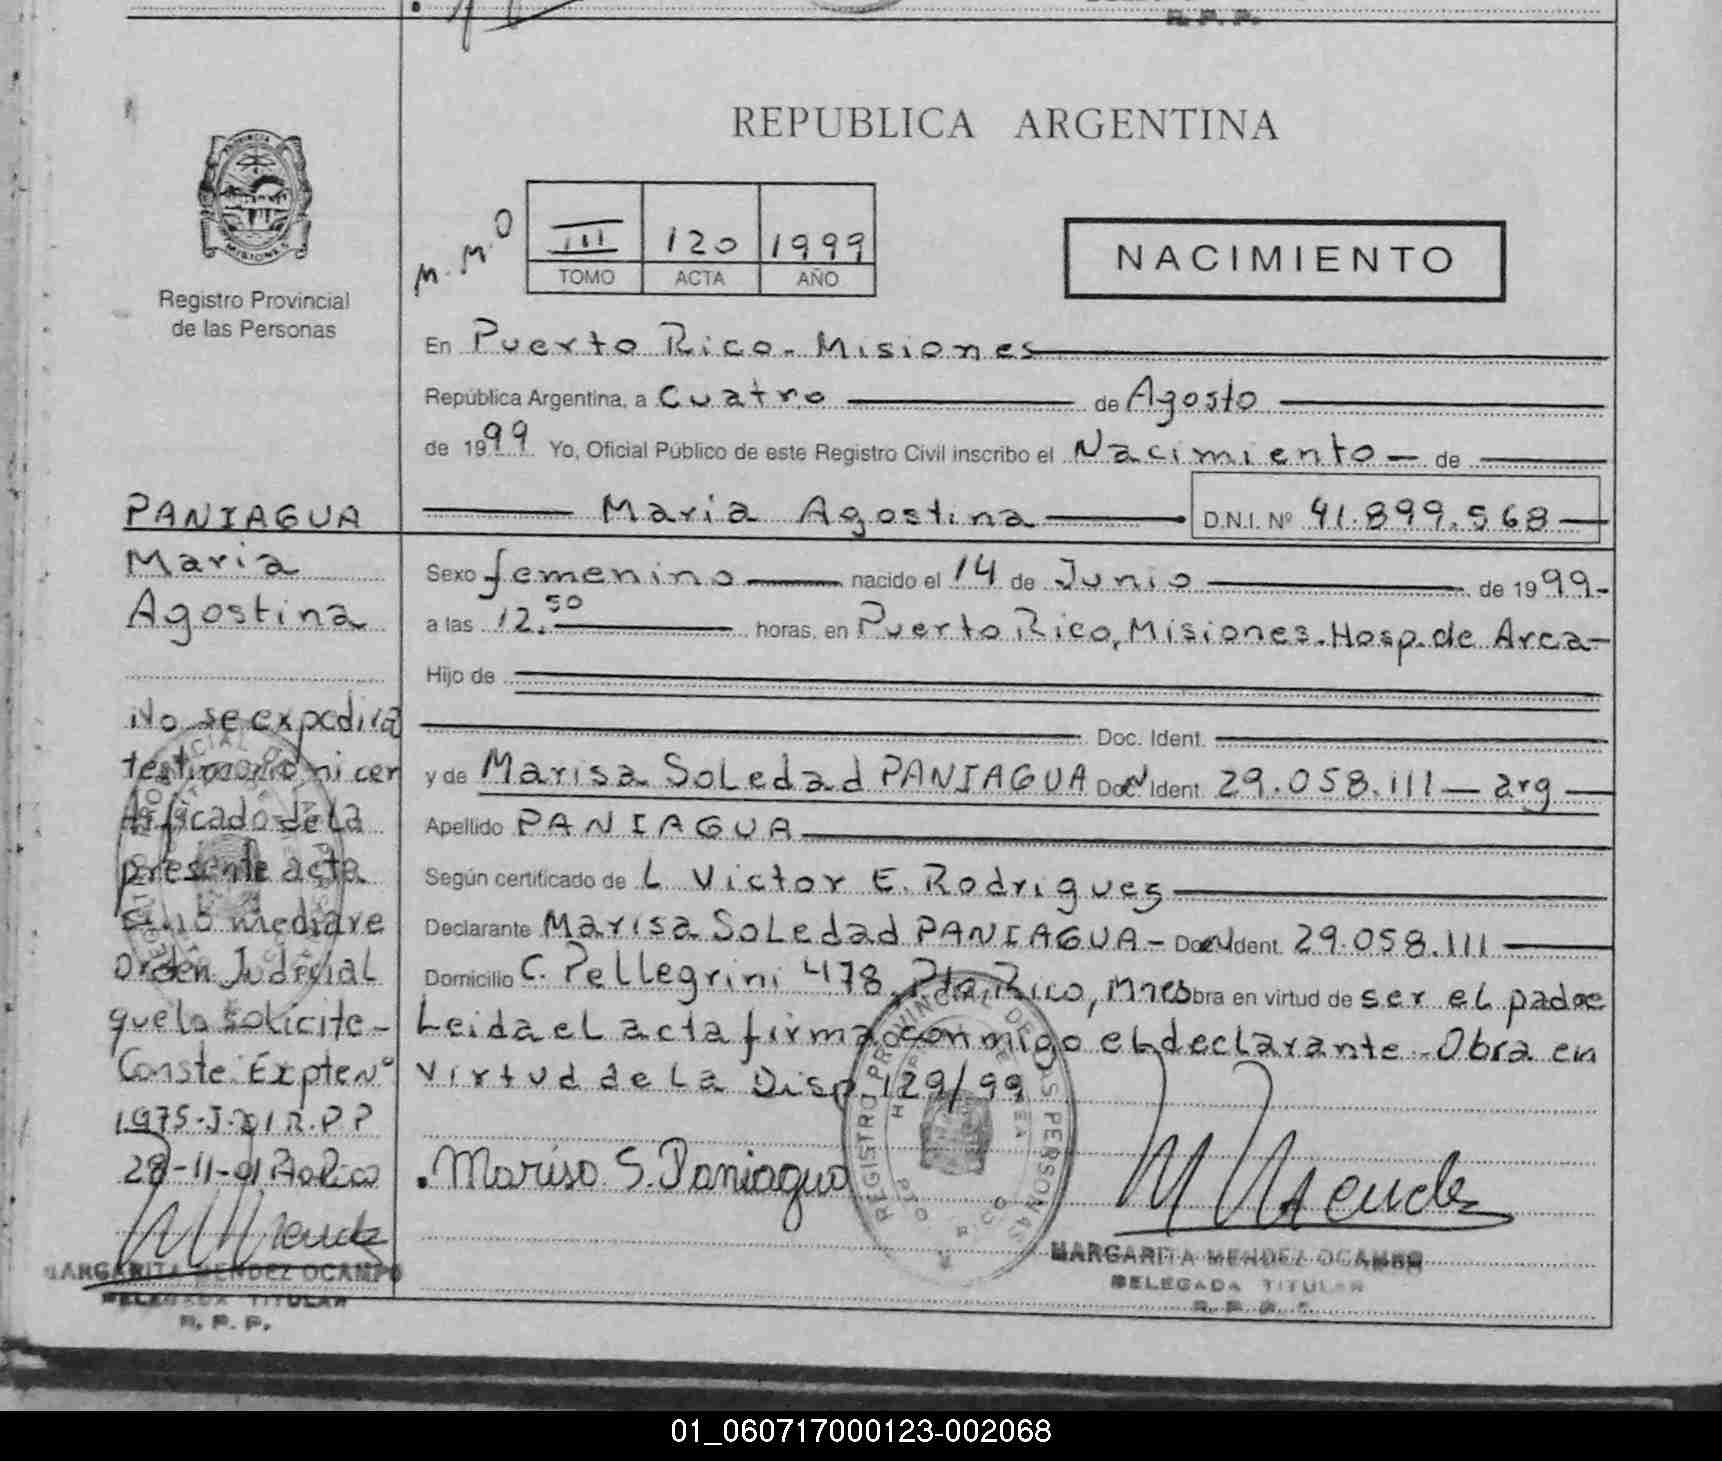 R. P. P.
REPUBLICA ARGENTINA
PROVINCIA
MISIONES
Registro Provincial
de las Personas
M. M. O
III 120 1999
TOMO ACTA AÑO
NACIMIENTO
En Puerto Rico - Misiones
República Argentina, a Cuatro de Agosto
de 1999 Yo, Oficial Público de este Registro Civil inscribo el Nacimiento - de
Maria Agostina D.N.I. Nº 41.899.568
Sexo femenino nacido el 14 de Junio de 1999-
a las 12.50 horas, en Puerto Rico, Misiones. Hosp. de Area-
Hijo de
Doc. Ident.
y de Marisa Soledad PANIAGUA Doc. Ident. 29.058.111 - arg
Apellido PANIAGUA
Según certificado de L Victor E. Rodrigues
Declarante Marisa Soledad PANIAGUA - Doc. Ident. 29.058.111
Domicilio C. Pellegrini 478. Pto Rico, Mnes Obra en virtud de ser el padre
Leida el acta firma conmigo el declarante - Obra en
virtud de la Disp 129/99
Marisa S. Paniagua
M Mendez
MARGARITA MENDEZ OCAMPO
DELEGADA TITULAR
R. P. P.
REGISTRO PROVINCIAL DE LAS PERSONAS
PANIAGUA
Maria
Agostina
No se expedira
testimonio ni cer
tificado de la
presente acta
si no mediare
Orden Judicial
que lo solicite-
Conste: Expte Nº
1975-J-01 R.P P
28-11-01 Pto Rico
M Mendez
MARGARITA MENDEZ OCAMPO
DELEGADA TITULAR
R. P. P.
01_060717000123-002068